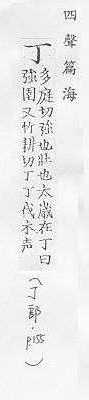 四聲篇海
丁
多庭切強也壯也太歲在丁曰
強圉又竹耕切丁丁伐木声
(丁部.p.155)